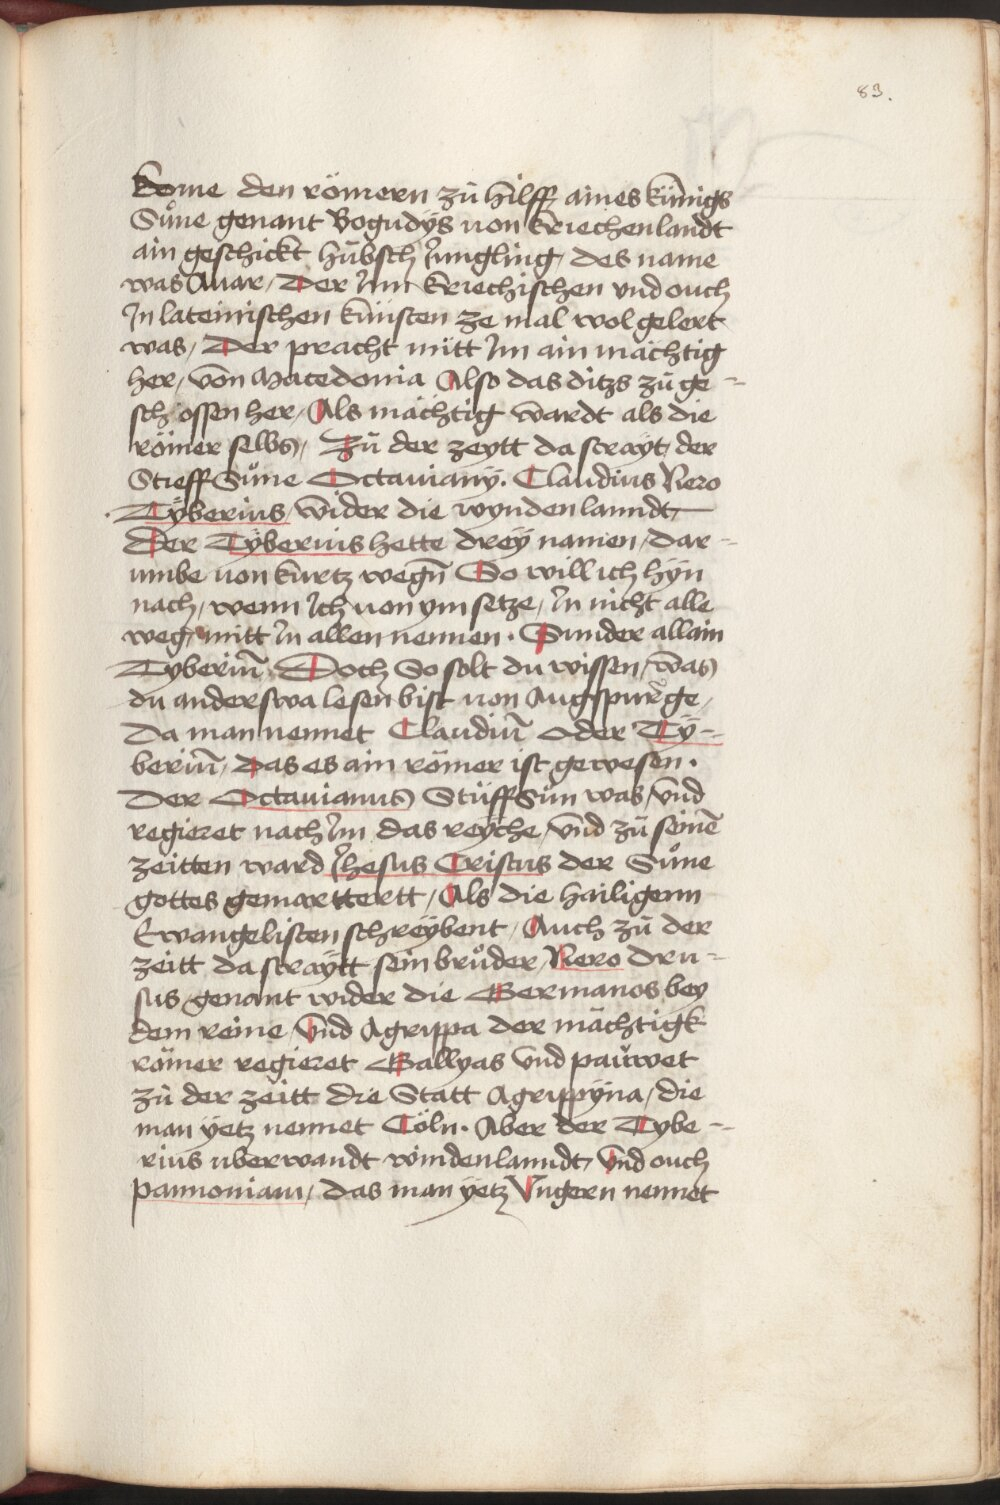 83.
kome den römern zů hilff aines künigs
Sůne genant Bogudÿs von kriechenlandt
ain geschickt hübsch Jungling / des name
was Auar / Der Jnn kriechischen vnd ouch
Jn lateinischen künsten ze mal wol gelert
was / Der pracht mitt Jm ain mächtig
her / von Macedonia Also das ditzs zů ge =
schlossen her / Als mächtig wardt als die
römer selbs / Zů der zeytt da strayt der
Stieff Sůne Octauianÿ. Claudius Nero
Tÿberius / wider die wynden lanndt
Der Tÿberius hette dreÿ namen / dar =
umbe von kurtz wegn̄ So will ich hÿn
nach / wenn Ich von ym setze / Jn nicht alle
weg / mitt Jn allen nennen. Sunder allain
Tyberiū. Doch So solt du wissen / was
du anderswa lesen bist von Augspurge /
Da man nennet Claudiū oder Tÿ =
beriū / Das es ain römer ist gewesen.
Der Octauianus Stüff Sůn was / vnd
regieret nach Jm das reÿche / vnd zů seinē
zeitten ward Jhesus Cristus der Sůne
gottes gemarttertt / Als die hailigenn
Ewangelisten schreÿbent / Auch zů der
zeitt da straÿtt sein brůder / Nero dru =
sus / genant wider die Germanos bey
dem reine / Vnd Agrippa der mächtigk
römer regieret Gallyas vnd pauwet
zů der zeitt die Statt Agrippÿna / die
man ÿetz nennet Cöln. Aber der Tybe =
rius uberwandt windenlanndt / Vnd ouch
pannoniam / das man ÿetz Vngern nennet